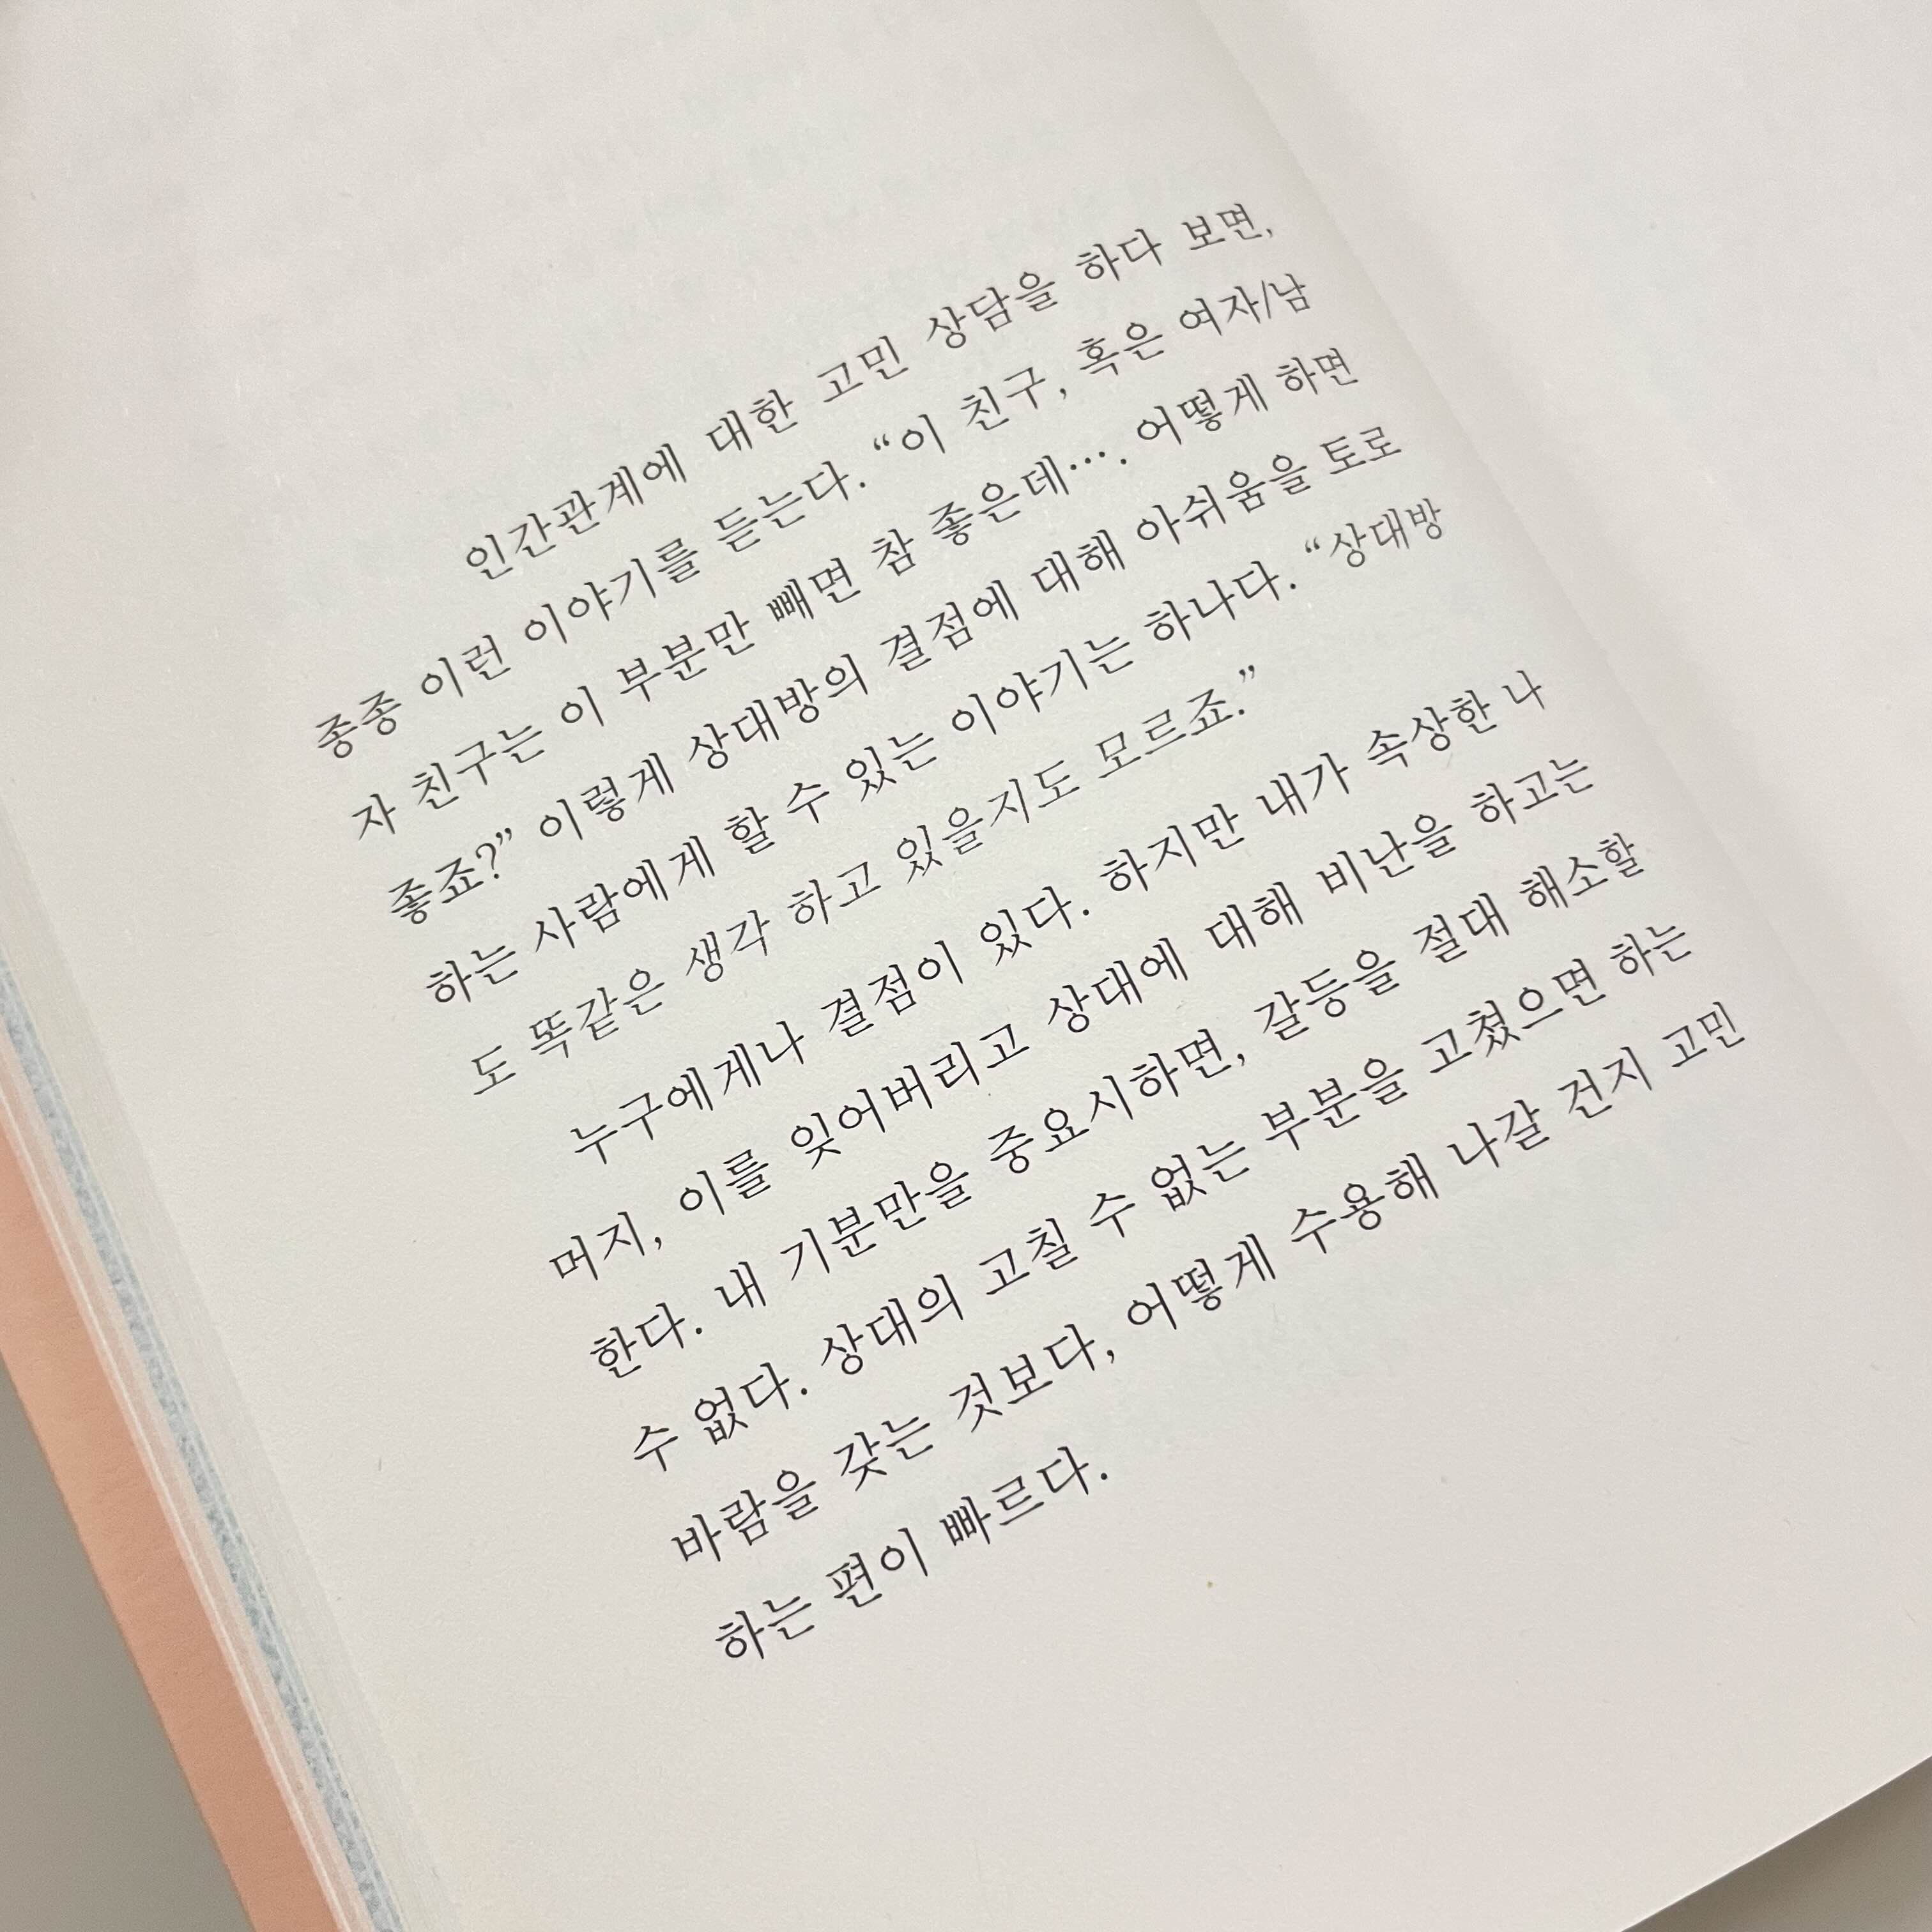 인간관계에 대한 고민 상담을 하다 보면,
종종 이런 이야기를 듣는다. “이 친구, 혹은 여자/남
자 친구는 이 부분만 빼면 참 좋은데…. 어떻게 하면
좋죠?” 이렇게 상대방의 결점에 대해 아쉬움을 토로
하는 사람에게 할 수 있는 이야기는 하나다. “상대방
도 똑같은 생각 하고 있을지도 모르죠.”
누구에게나 결점이 있다. 하지만 내가 속상한 나
머지, 이를 잊어버리고 상대에 대해 비난을 하고는
한다. 내 기분만을 중요시하면, 갈등을 절대 해소할
수 없다. 상대의 고칠 수 없는 부분을 고쳤으면 하는
바람을 갖는 것보다, 어떻게 수용해 나갈 건지 고민
하는 편이 빠르다.